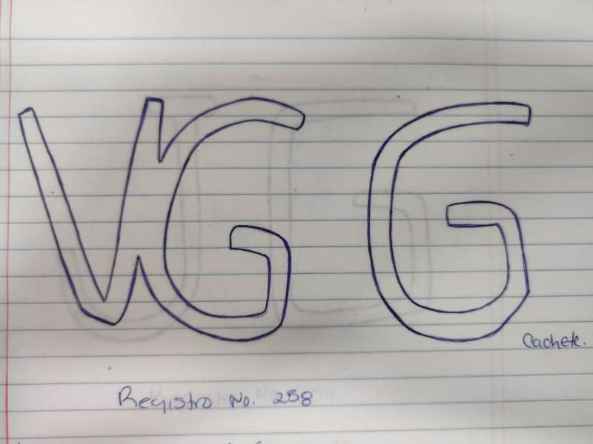 VG G
Cachete.
Registro No. 258